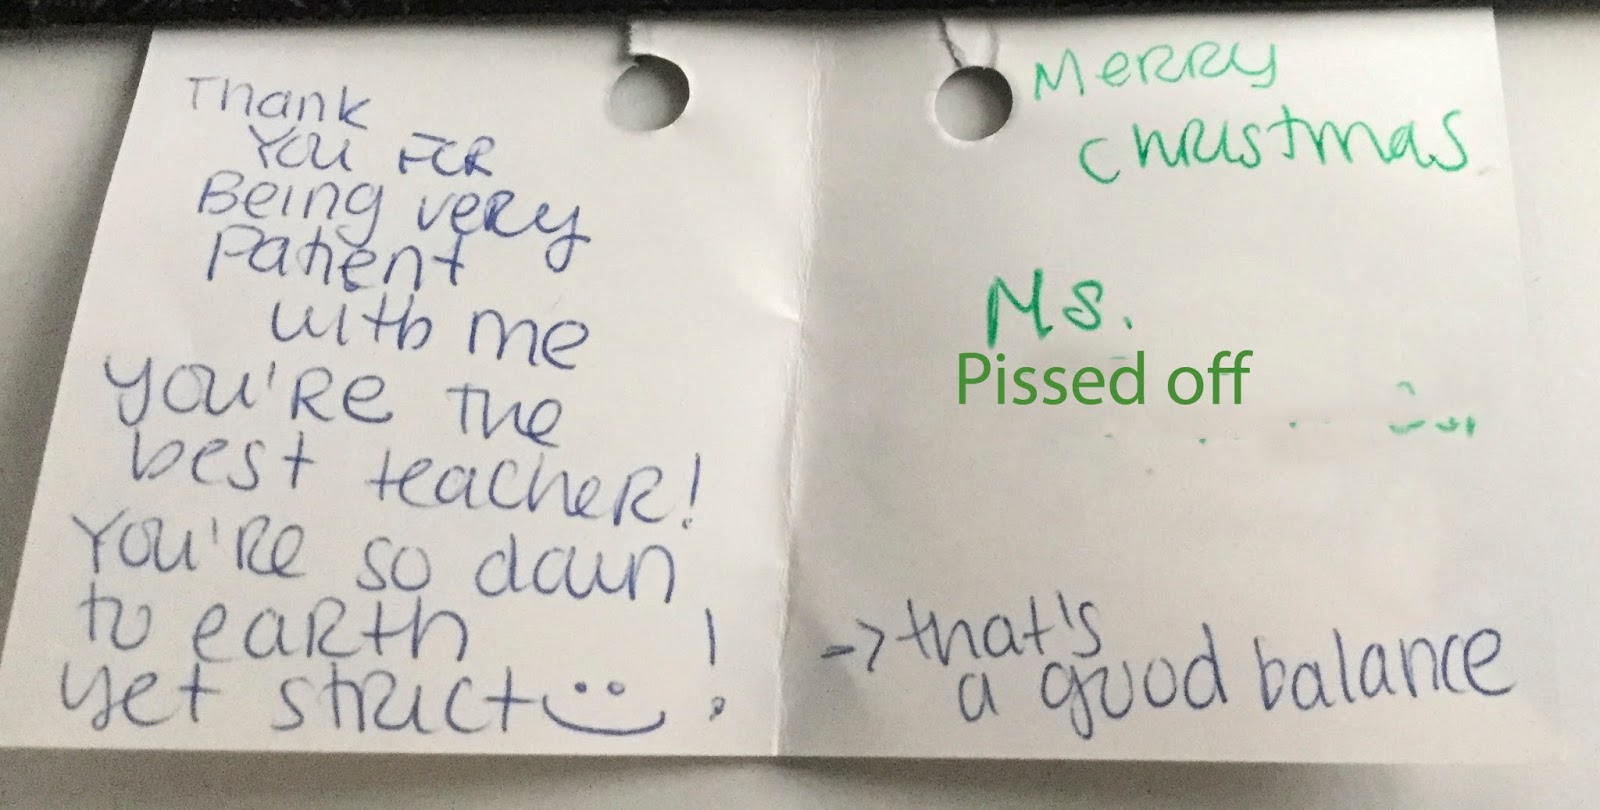 Thank
You FOR
Being very
Patient
with me
You're the
best teacher!
You're so down
to earth
yet strict !
Merry
christmas
Ms.
Pissed off
-> that's
a good balance